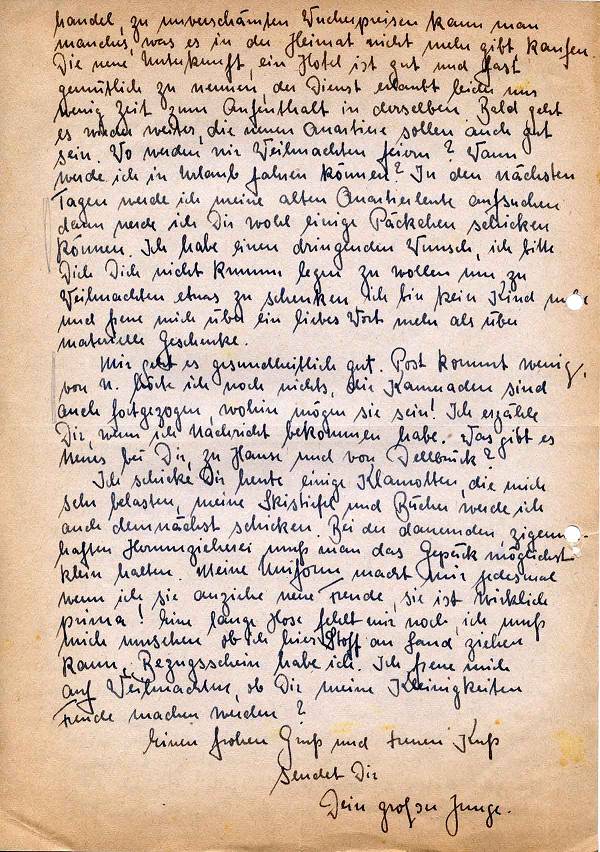 handel, zu unverschämten Wucherpreisen kann man
manches, was es in der Heimat nicht mehr gibt kaufen.
Die neue Unterkunft, ein Hotel ist gut und fast
gemütlich zu nennen, der Dienst erlaubt leider nur
wenig Zeit zum Aufenthalt in derselben. Bald geht
es wieder weiter, die neuen Quartiere sollen auch gut
sein. Wo werden wir Weihnachten feiern? Wann
werde ich in Urlaub fahren können? In den nächsten
Tagen werde ich meine alten Quartierleute aufsuchen
dann werde ich Dir wohl einige Päckchen schicken
können. Ich habe einen dringenden Wunsch, ich bitte
Dich Dich nicht krumm legen zu wollen um zu
Weihnachten etwas zu schenken ich bin kein Kind
und freue mich über ein liebes Wort mehr als über
materielle Geschenke.
Mir geht es gesundheitlich gut. Post kommt wenig,
von N. hörte ich noch nichts, die Kameraden sind
auch fortgezogen, wohin mögen sie sein! Ich erzähle
Dir, wenn ich Nachricht bekommen habe. Was gibt es
Neues bei Dir, zu Hause und von Dellbrück?
Ich schicke Dir heute einige Klamotten, die mich
sehr belasten, meine Skistiefel und Bücher werde ich
auch demnächst schicken. Bei der dauernden, zigeuner-
haften Herumzieherei muß man das Gepäck möglichst
klein halten. Meine Uniform macht mir jedesmal
wenn ich sie anziehe neue Freude, sie ist wirklich
prima! Eine lange Hose fehlt mir noch, ich muß
mich umsehen ob ich hier Stoff an Land ziehen
kann, Bezugsschein habe ich. Ich freue mich
auf Weihnachten, ob Dir meine Kleinigkeiten
Freude machen werden?
Einen frohen Gruß und treuen Kuß
sendet Dir
Dein großer Junge.